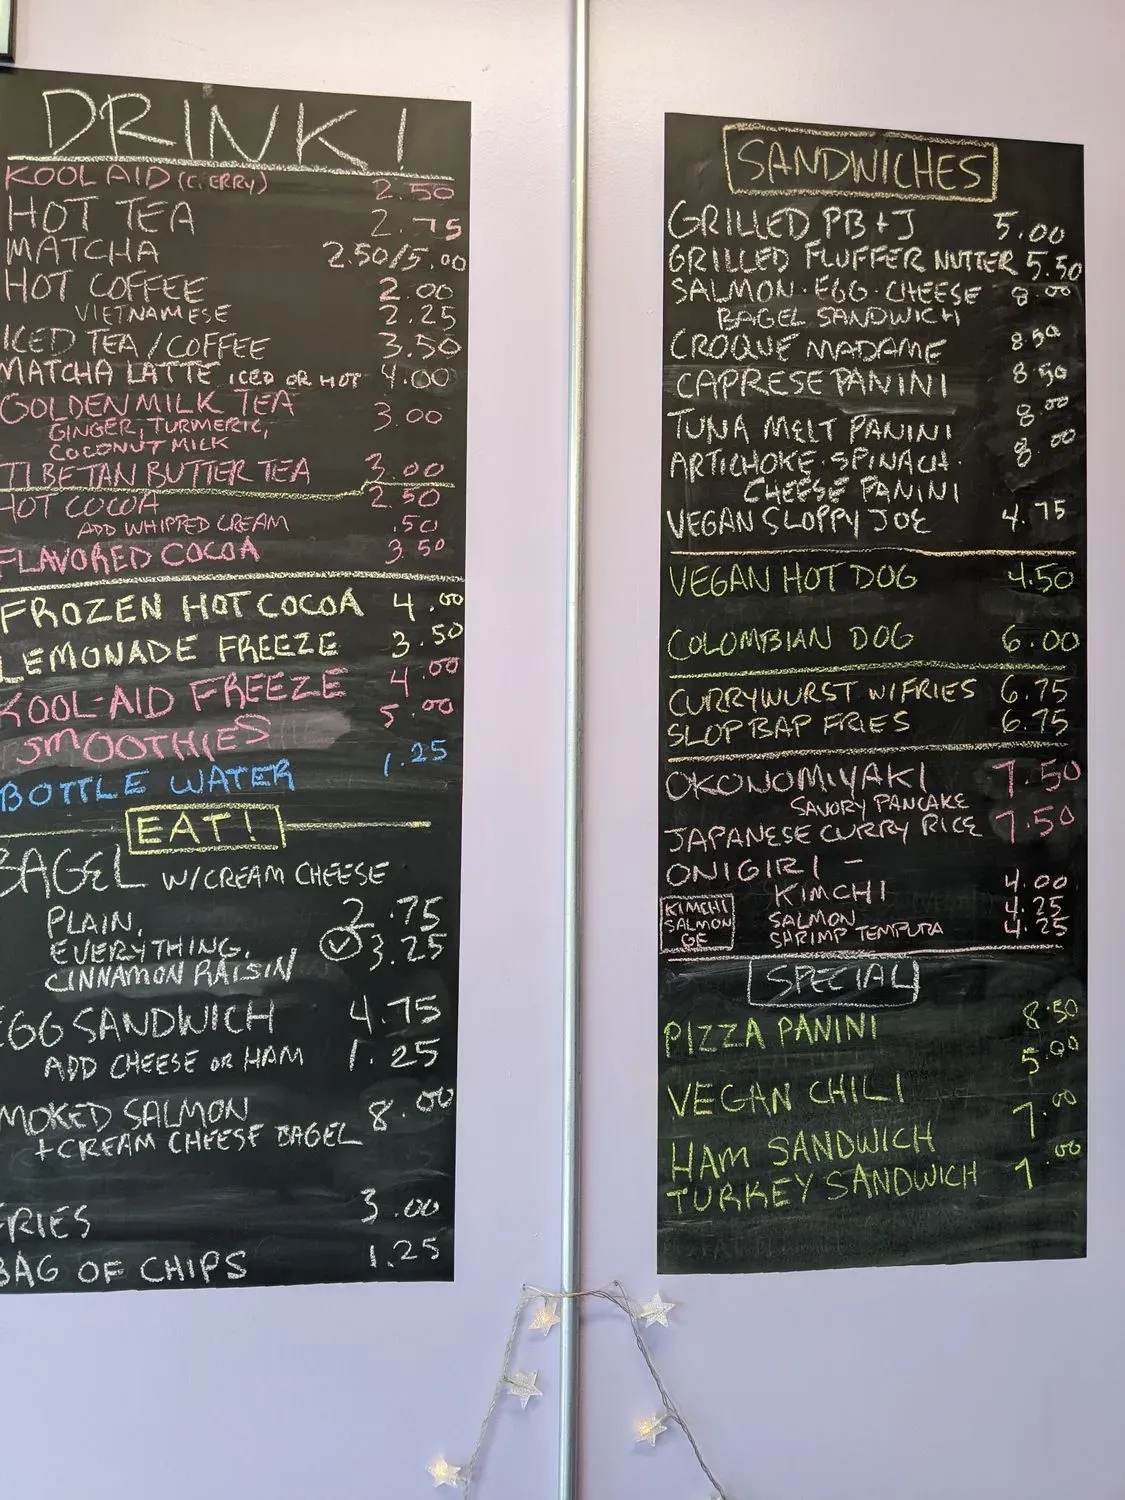 DRINK!
KOOL AID (CHERRY) 2.50
HOT TEA 2.75
MATCHA 2.50/5.00
HOT COFFEE 2.00
VIETNAMESE 2.25
ICED TEA/COFFEE 3.50
MATCHA LATTE ICED OR HOT 4.00
GOLDEN MILK TEA 3.00
GINGER, TURMERIC,
COCONUT MILK
TIBETAN BUTTER TEA 3.00
HOT COCOA 2.50
ADD WHIPPED CREAM .50
FLAVORED COCOA 3.50
FROZEN HOT COCOA 4.00
LEMONADE FREEZE 3.50
KOOL-AID FREEZE 4.00
SMOOTHIES 5.00
BOTTLE WATER 1.25
EAT!
BAGEL W/CREAM CHEESE
PLAIN, 2.75
EVERYTHING, 3.25
CINNAMON RAISIN
EGG SANDWICH 4.75
ADD CHEESE OR HAM 1.25
SMOKED SALMON 8.00
+CREAM CHEESE BAGEL
FRIES 3.00
BAG OF CHIPS 1.25
SANDWICHES
GRILLED PB+J 5.00
GRILLED FLUFFER NUTTER 5.50
SALMON·EGG·CHEESE 8.00
BAGEL SANDWICH
CROQUE MADAME 8.50
CAPRESE PANINI 8.50
TUNA MELT PANINI 8.00
ARTICHOKE·SPINACH· 8.00
CHEESE PANINI
VEGAN SLOPPY JOE 4.75
VEGAN HOT DOG 4.50
COLOMBIAN DOG 6.00
CURRYWURST W/FRIES 6.75
SLOP BAP FRIES 6.75
OKONOMIYAKI 7.50
SAVORY PANCAKE
JAPANESE CURRY RICE 7.50
ONIGIRI -
KIMCHI 4.00
SALMON 4.25
SHRIMP TEMPURA 4.25
KIMCHI
SALMON
GE
SPECIAL
PIZZA PANINI 8.50
VEGAN CHILI 5.00
HAM SANDWICH 7.00
TURKEY SANDWICH 7.00